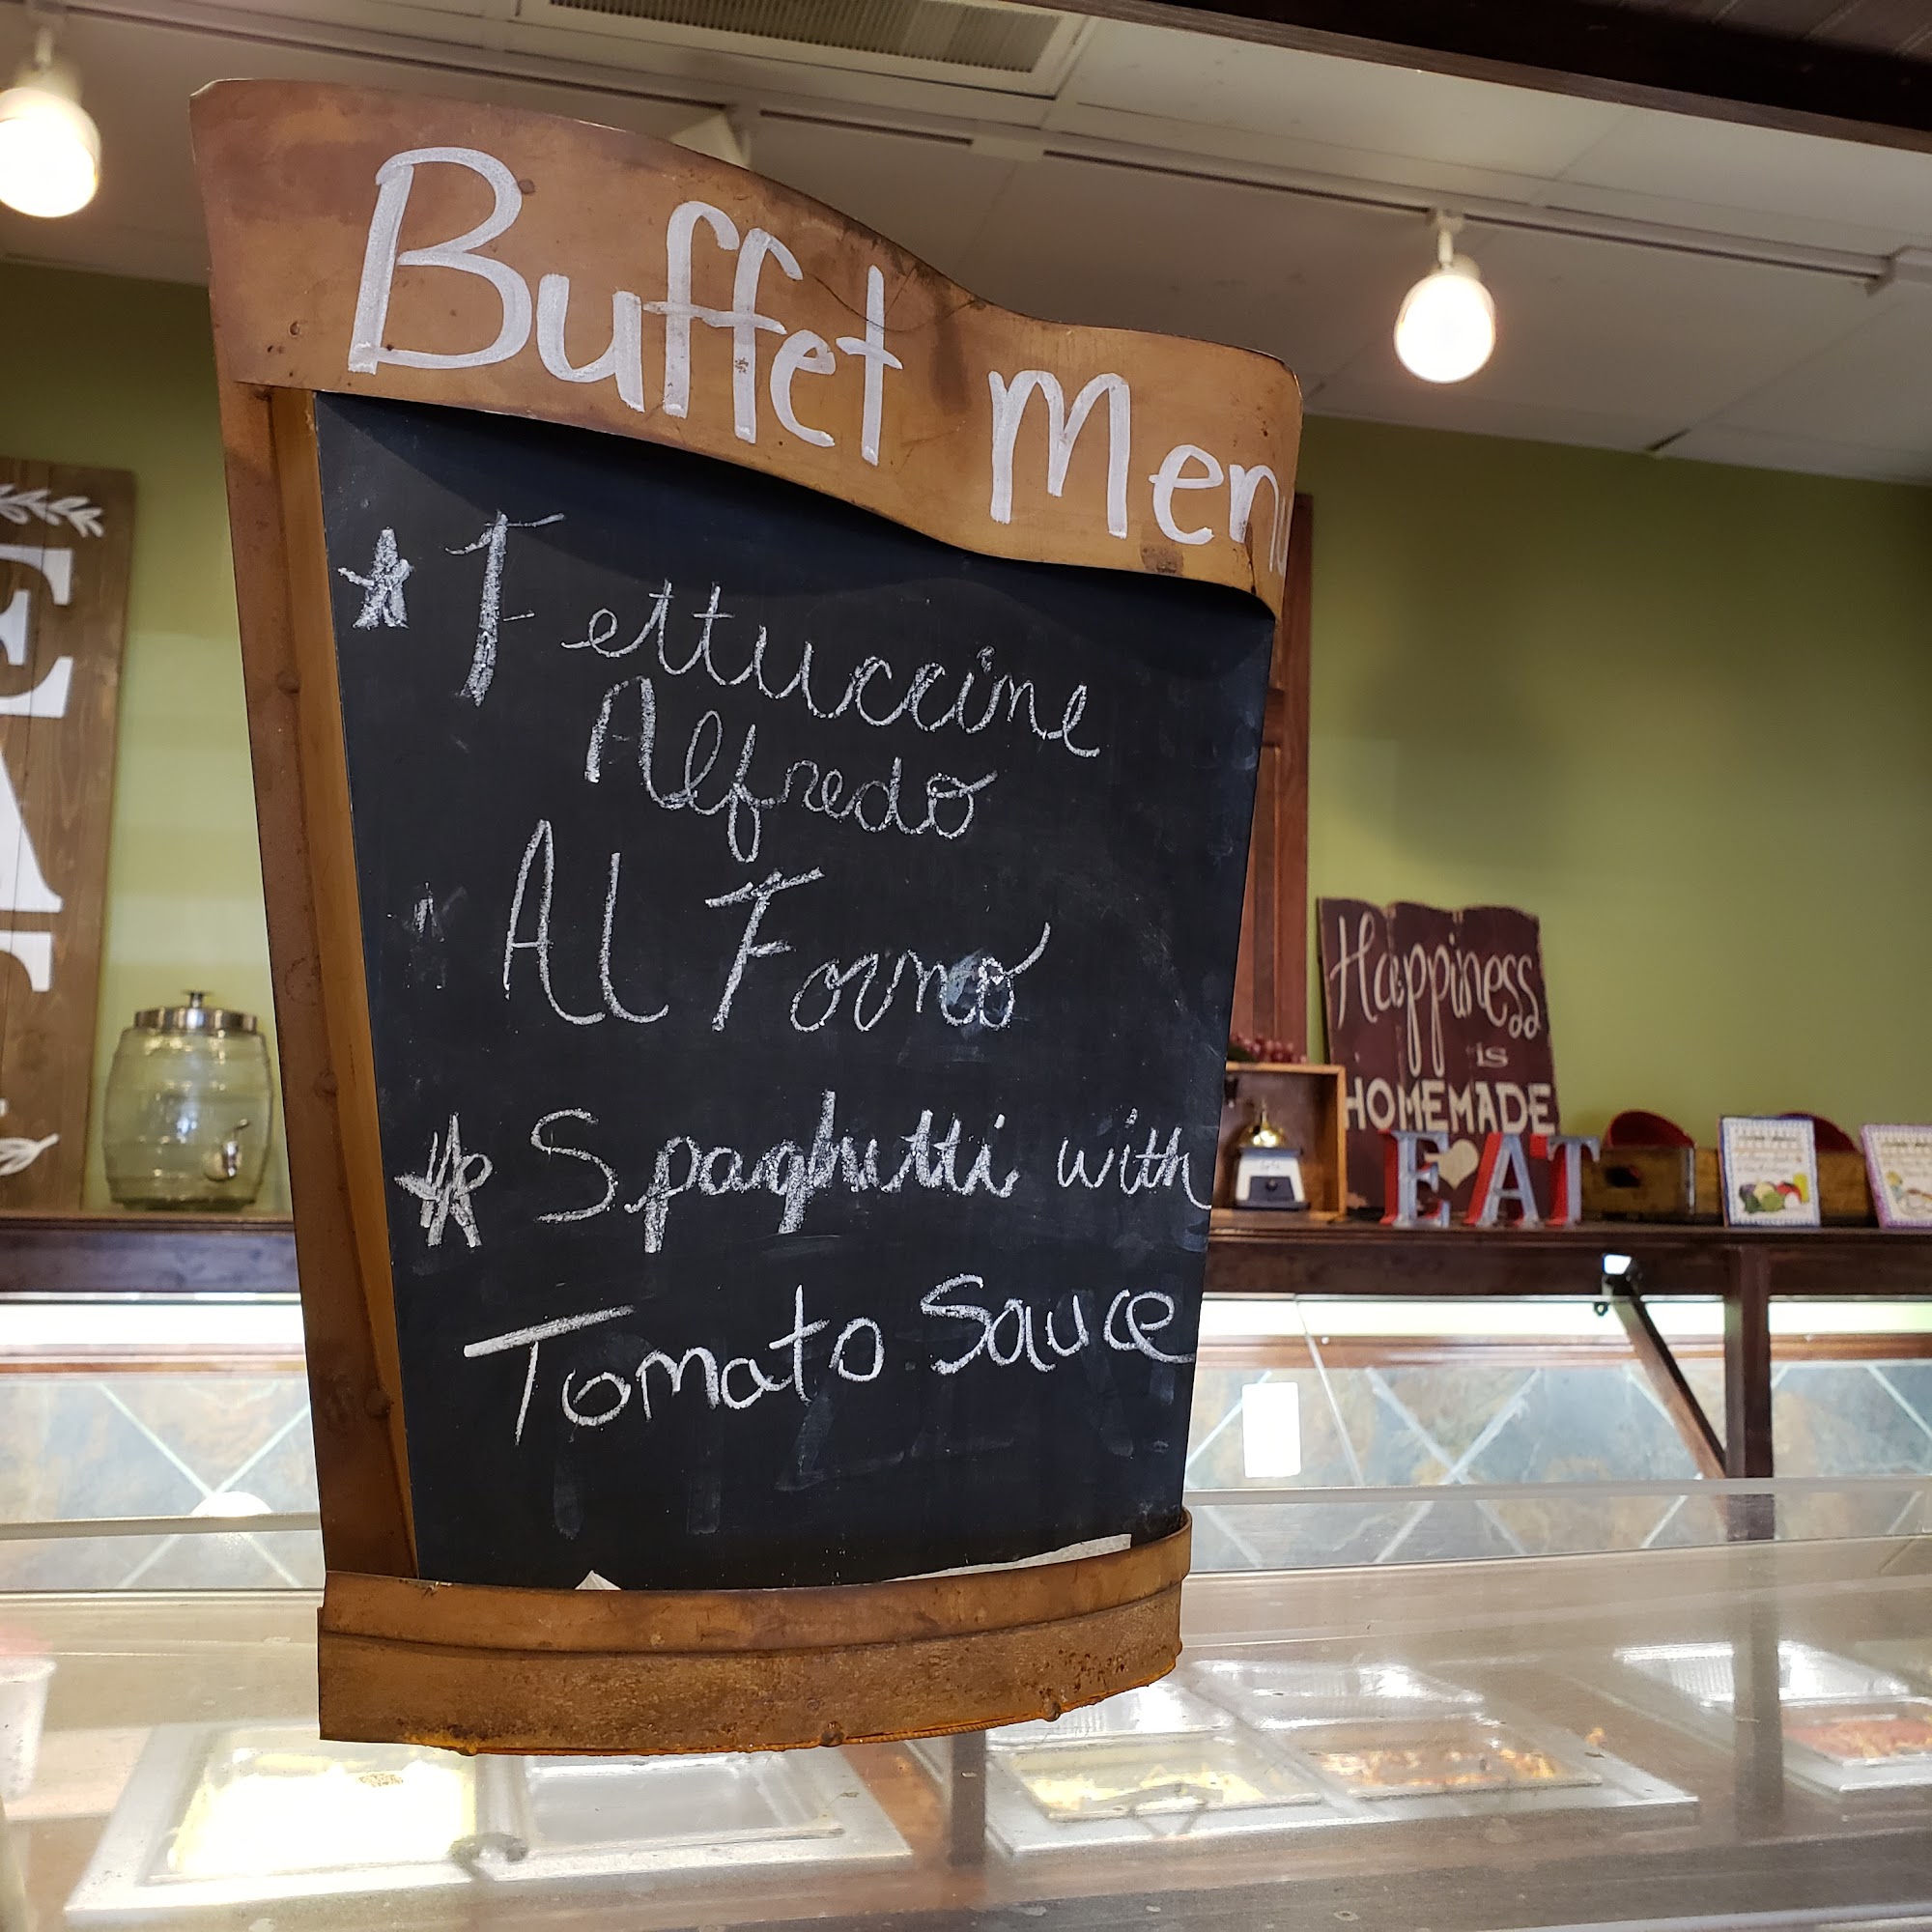 Buffet Menu
Fettuccine
Alfredo
Al Forno
Spaghetti with
Tomato Sauce
Happiness
is
HOMEMADE
EAT